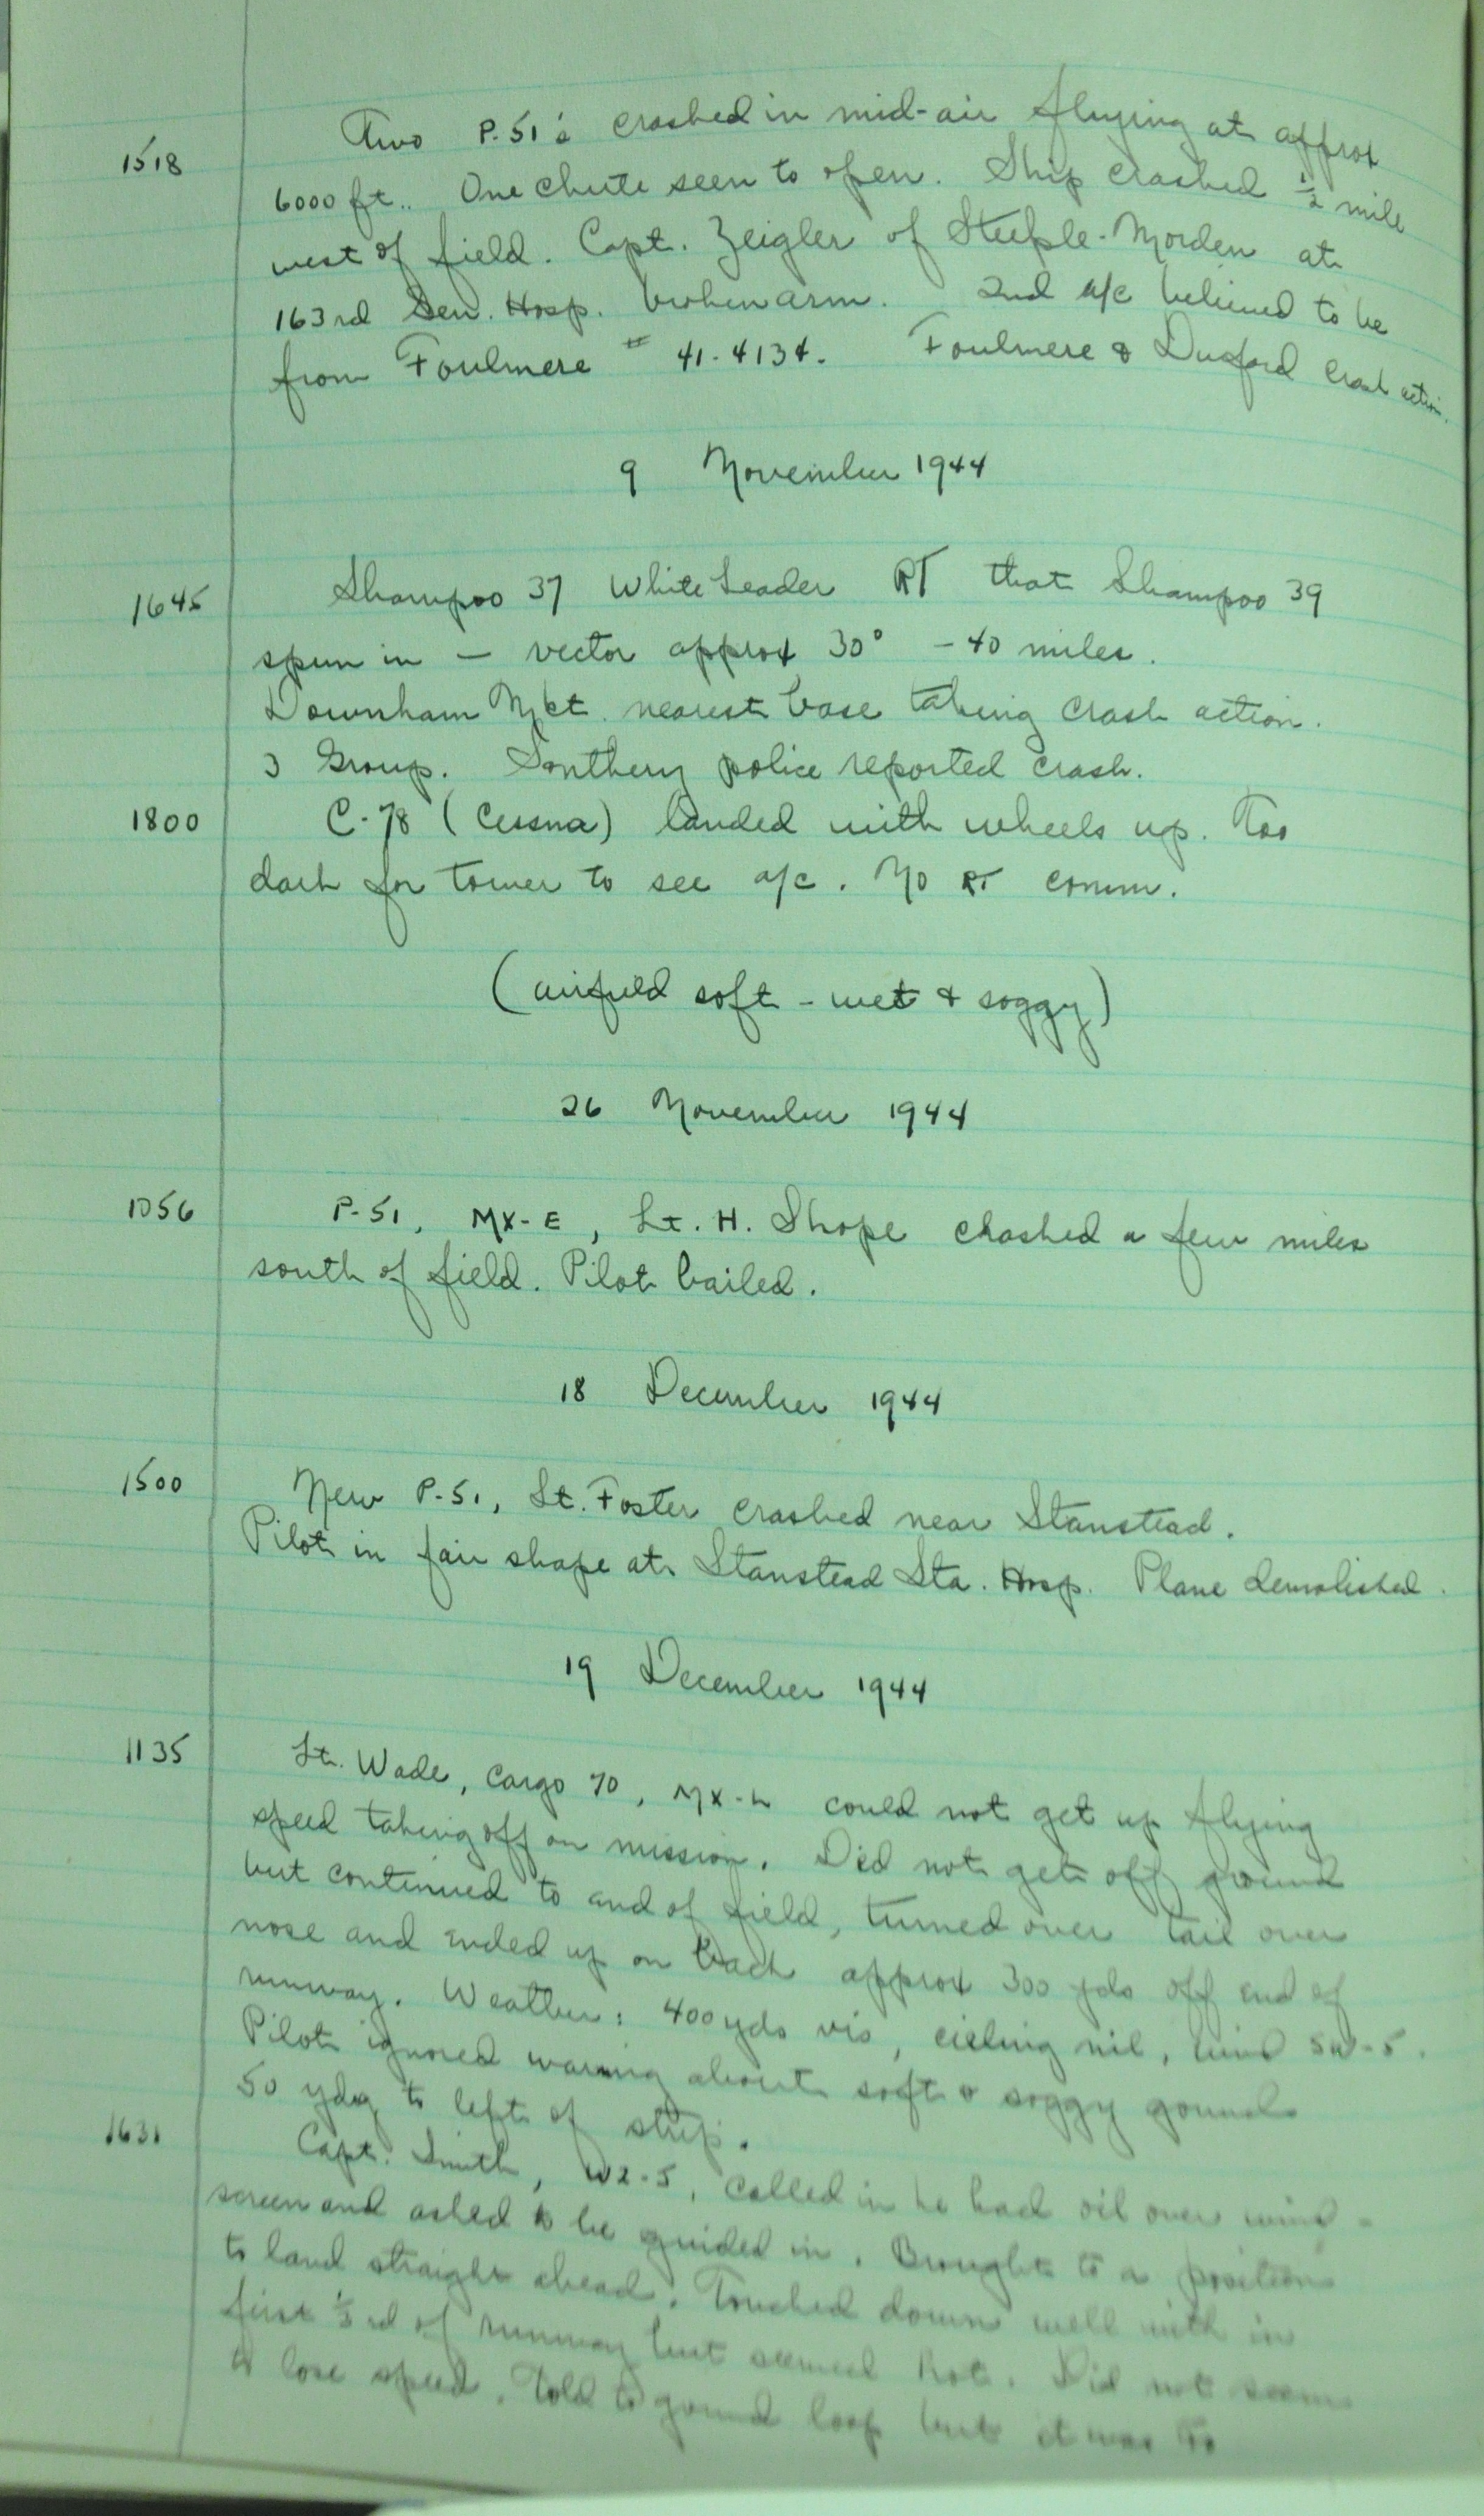 1518 Two P-51's crashed in mid-air flying at approx
6000 ft.. One chute seen to open. Ship crashed ½ mile
west of field. Capt. Zeigler of Steeple-Morden at
163rd Gen. Hosp. broken arm. 2nd a/c believed to be
from Foulmere # 41-4134. Foulmere & Duxford crash action.
9 November 1944
1645 Shampoo 37 White Leader RT that Shampoo 39
spun in – vector approx 30° – 40 miles.
Downham Mkt. nearest base taking crash action.
3 Group. Southery police reported crash.
1800 C-78 (Cessna) landed with wheels up. Too
dark for tower to see a/c. No RT comm.
(airfield soft – wet & soggy)
26 November 1944
1056 P-51, MX-E, Lt. H. Shope crashed a few miles
south of field. Pilot bailed.
18 December 1944
1500 New P-51, Lt. Foster crashed near Stanstead.
Pilot in fair shape at Stanstead Sta. Hosp. Plane demolished.
19 December 1944
1135 Lt. Wade, Cargo 70, MX-L could not get up flying
speed taking off on mission. Did not get off ground
but continued to end of field, turned over tail over
nose and ended up on back approx 300 yds off end of
runway. Weather: 400 yds vis, cieling nil, wind SW-5.
Pilot ignored warning about soft & soggy gound
50 ydg to left of strip.
1631 Capt. Smith, WZ-S, called in he had oil over wind-
screen and asked to be guided in. Brought to a position
to land straight ahead. Touched down well with in
first ⅓rd of runway but seemed hot. Did not seem
to lose speed. Told to gound loop but it was to